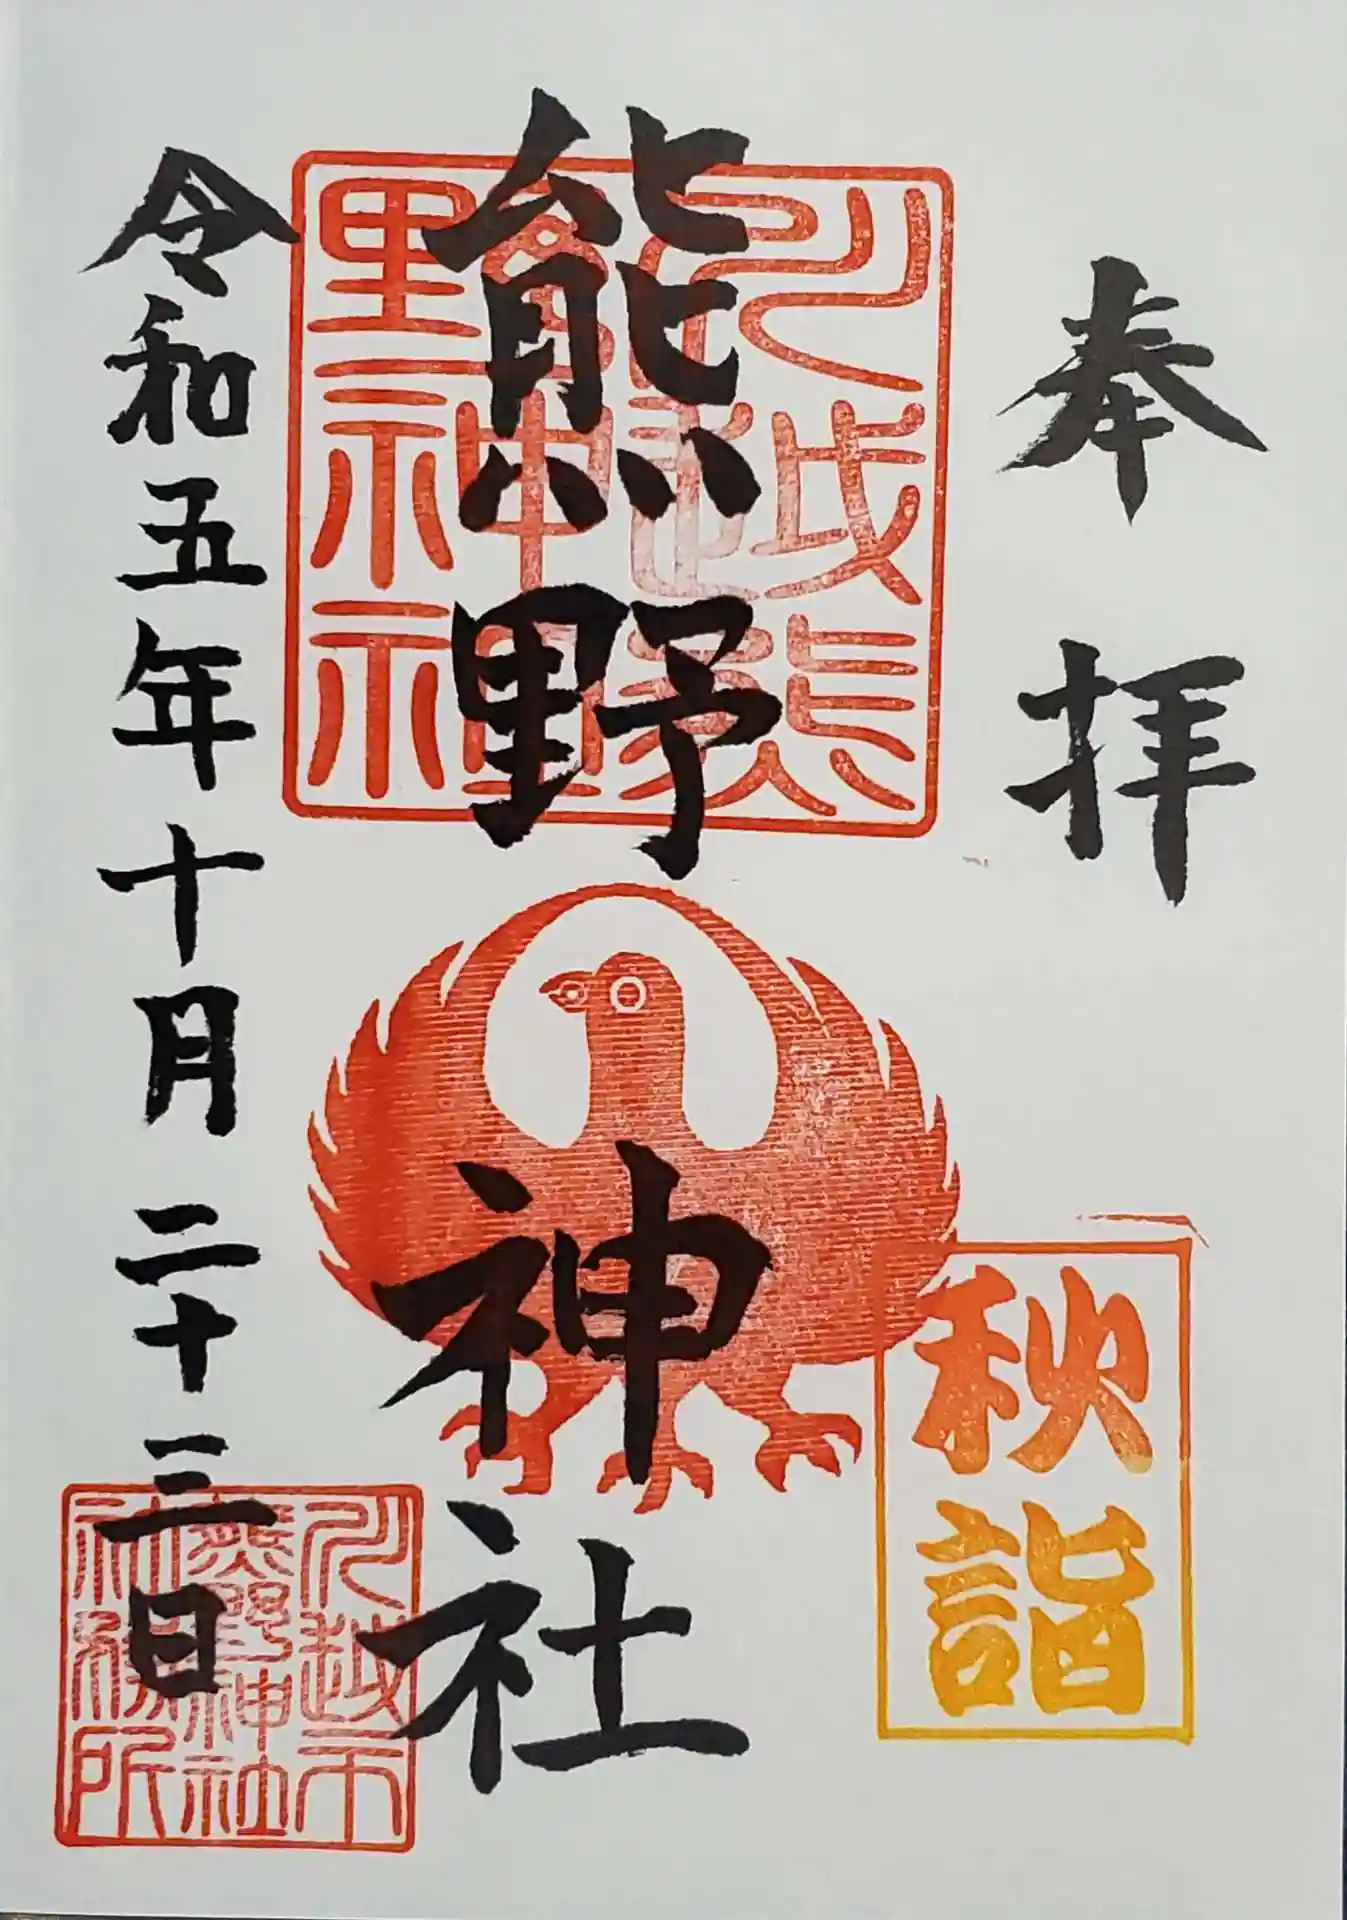 奉拝
川越熊野神社
熊野神社
秋詣
令和五年十月二十三日
川越市
熊野神社
社務所